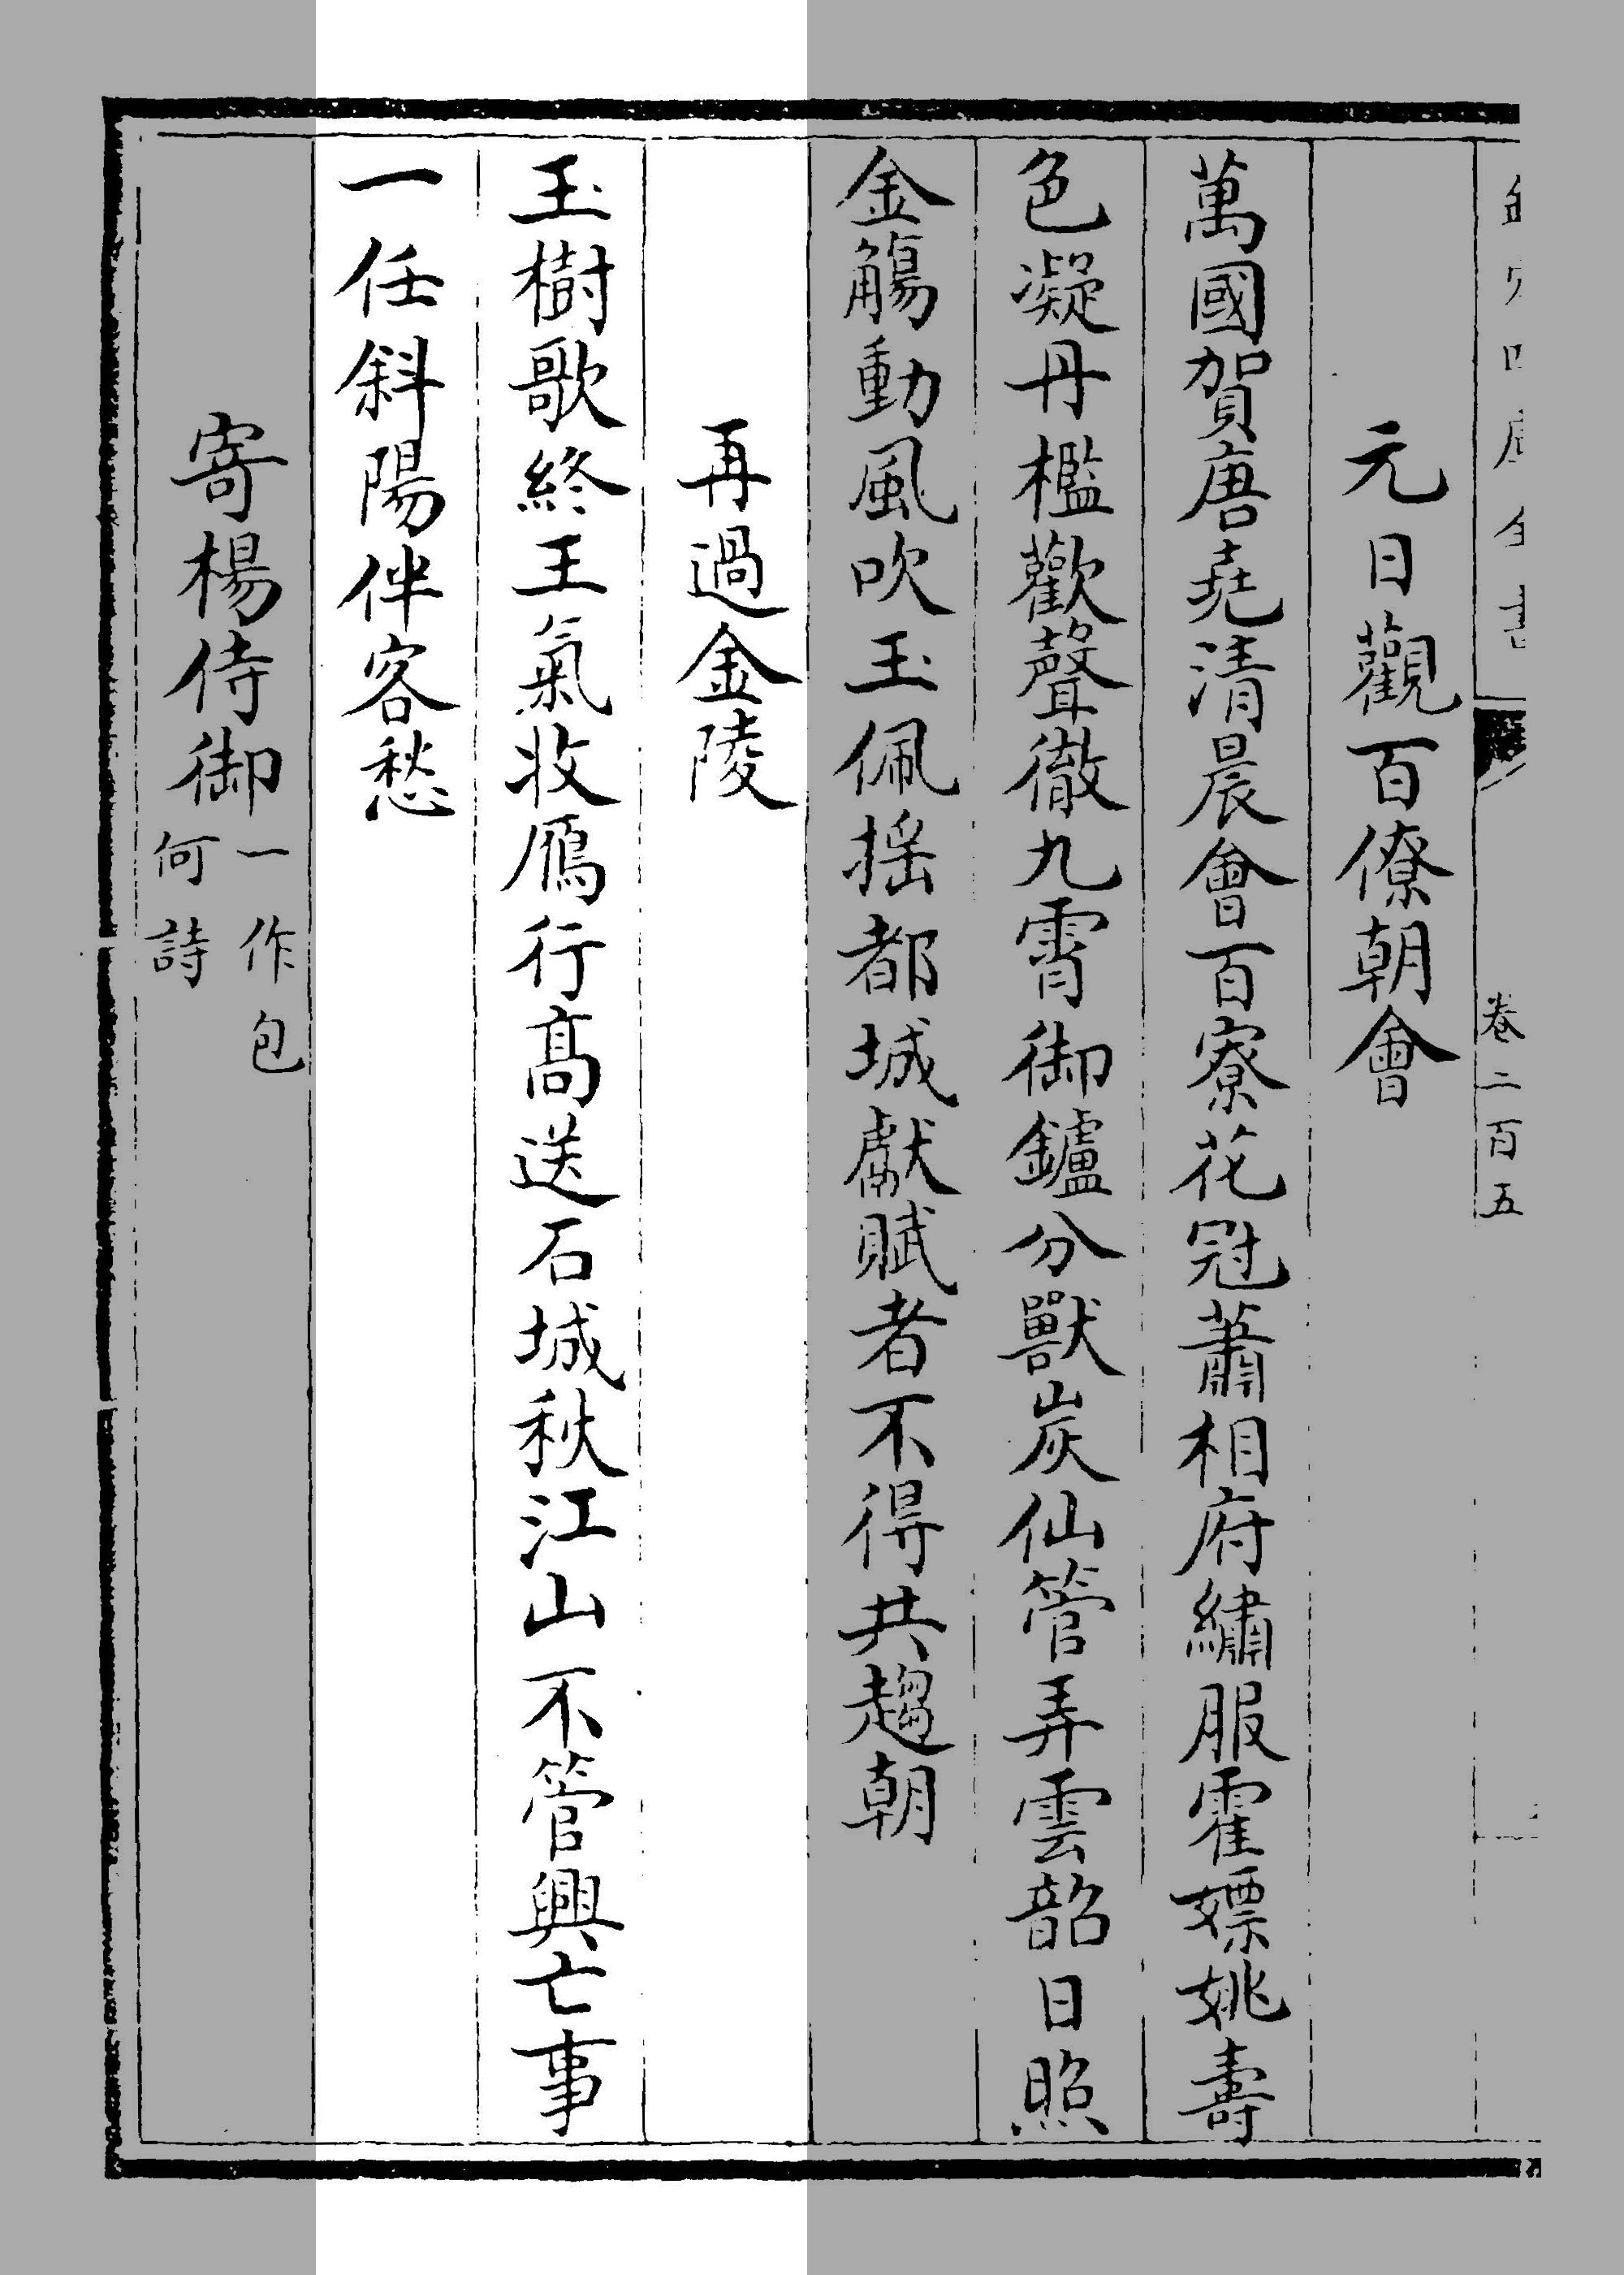 卷二百五
元日觀百僚朝會
萬國賀唐堯清晨會百寮花冠蕭相府繡服霍嫖姚壽
色凝丹檻歡聲徹九霄御鑪分獸炭仙管弄雲韶日照
金觴動風吹玉佩揺都城獻賦者不得共趨朝
再過金陵
玉樹歌終王氣收鴈行高送石城秋江山不管興亡事
一任斜陽伴客愁
寄楊侍御一作包
何詩